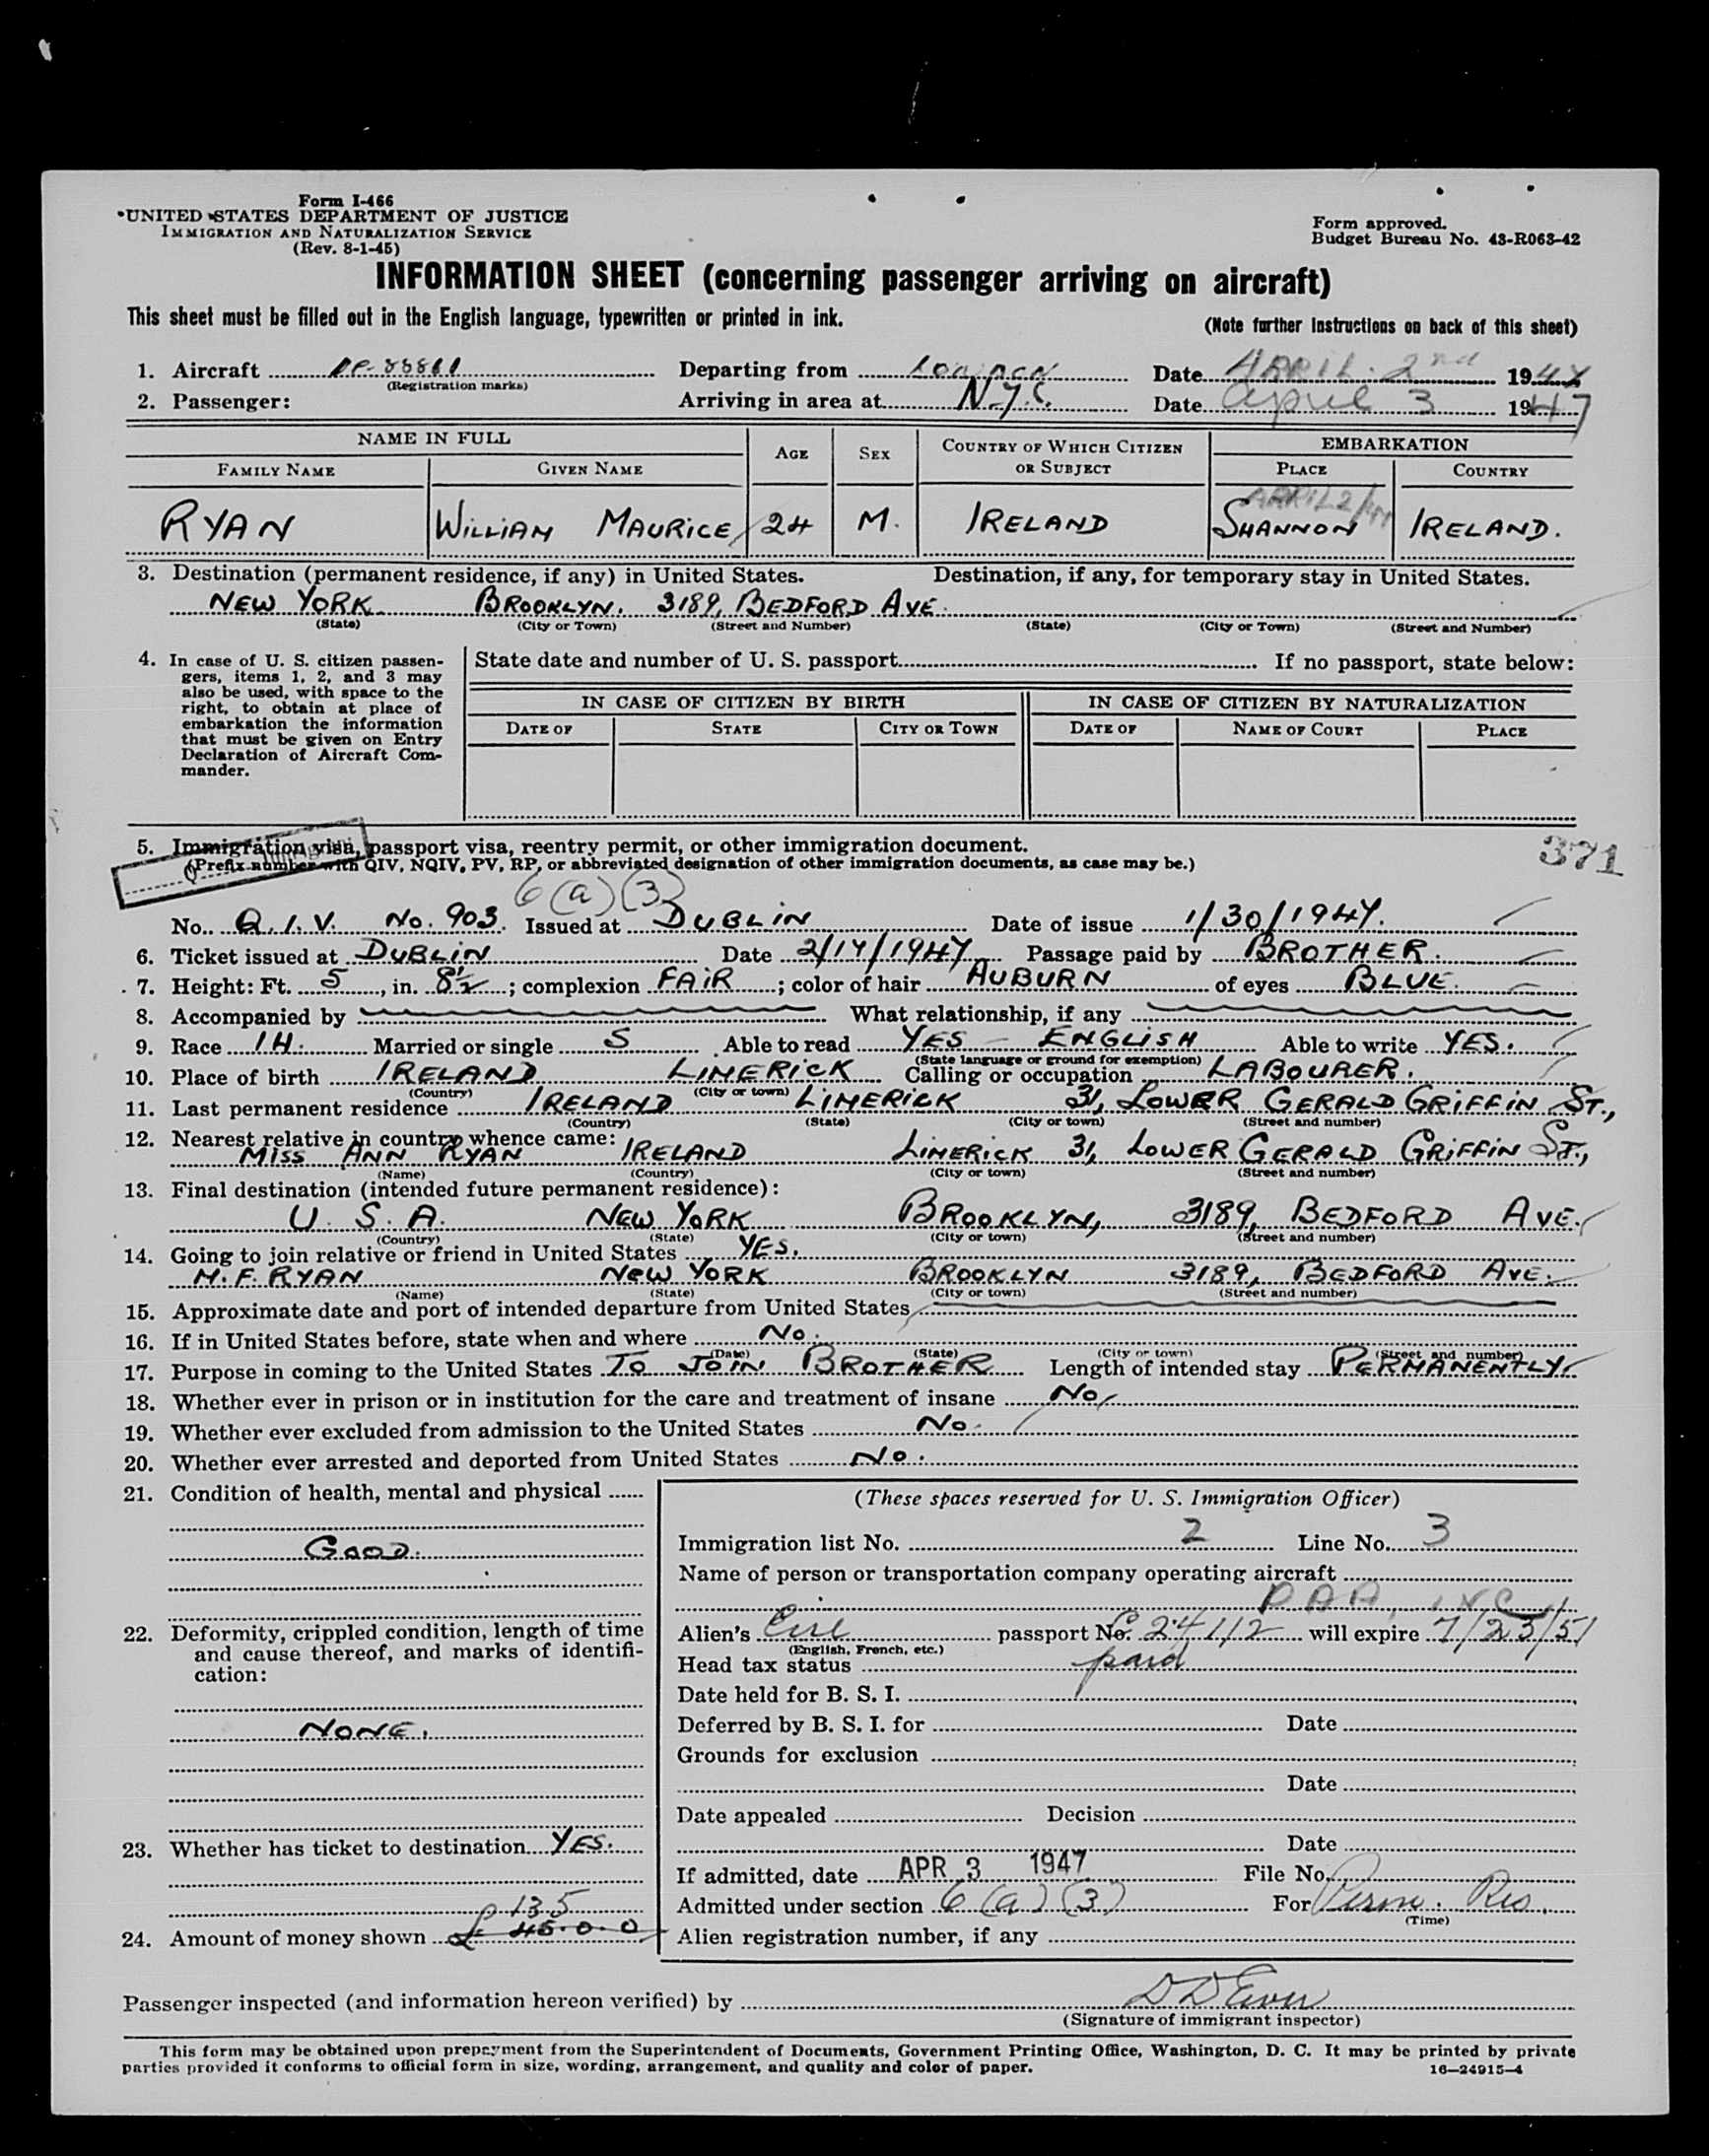 Form I-466
UNITED STATES DEPARTMENT OF JUSTICE
IMMIGRATION AND NATURALIZATION SERVICE
(Rev. 8-1-45)
Form approved.
Budget Bureau No. 43-R063-42
INFORMATION SHEET (concerning passenger arriving on aircraft)
This sheet must be filled out in the English language, typewritten or printed in ink.
(Note further instructions on back of this sheet)
1. Aircraft Departing from LONDON Date APRIL 2nd 1947
(Registration marks)
2. Passenger: Arriving in area at N.Y.C. Date April 3 1947
NAME IN FULL AGE SEX COUNTRY OF WHICH CITIZEN OR SUBJECT EMBARKATION
FAMILY NAME GIVEN NAME PLACE COUNTRY
APRIL 2/47
RYAN WILLIAM MAURICE 24 M. IRELAND SHANNON IRELAND.
3. Destination (permanent residence, if any) in United States. Destination, if any, for temporary stay in United States.
NEW YORK BROOKLYN. 3189, BEDFORD AVE.
(State) (City or Town) (Street and Number) (State) (City or Town) (Street and Number)
4. In case of U. S. citizen passen-
gers, items 1, 2, and 3 may
also be used, with space to the
right, to obtain at place of
embarkation the information
that must be given on Entry
Declaration of Aircraft Com-
mander.
State date and number of U. S. passport If no passport, state below:
IN CASE OF CITIZEN BY BIRTH IN CASE OF CITIZEN BY NATURALIZATION
DATE OF STATE CITY OR TOWN DATE OF NAME OF COURT PLACE
5. Immigration visa, passport visa, reentry permit, or other immigration document.
371
(Prefix number with QIV, NQIV, PV, RP, or abbreviated designation of other immigration documents, as case may be.)
6(a)(3)
No. Q.I.V. No. 903. Issued at DUBLIN Date of issue 1/30/1947.
6. Ticket issued at DUBLIN Date 2/17/1947 Passage paid by BROTHER.
7. Height: Ft. 5, in. 8½; complexion FAIR; color of hair AUBURN of eyes BLUE.
8. Accompanied by What relationship, if any
9. Race IH. Married or single S Able to read YES - ENGLISH Able to write YES.
(State language or ground for exemption)
10. Place of birth IRELAND LIMERICK Calling or occupation LABOURER.
(Country) (City or town)
11. Last permanent residence IRELAND LIMERICK 31, LOWER GERALD GRIFFIN ST.,
(Country) (State) (City or town) (Street and number)
12. Nearest relative in country whence came:
MISS ANN RYAN IRELAND LIMERICK 31, LOWER GERALD GRIFFIN ST.,
(Name) (Country) (City or town) (Street and number)
13. Final destination (intended future permanent residence):
U. S. A. NEW YORK BROOKLYN, 3189, BEDFORD AVE.
(Country) (State) (City or town) (Street and number)
14. Going to join relative or friend in United States YES.
M. F. RYAN NEW YORK BROOKLYN 3189, BEDFORD AVE.
(Name) (State) (City or town) (Street and number)
15. Approximate date and port of intended departure from United States
16. If in United States before, state when and where No.
(Date) (State) (City or town) (Street and number)
17. Purpose in coming to the United States TO JOIN BROTHER Length of intended stay PERMANENTLY.
18. Whether ever in prison or in institution for the care and treatment of insane No
19. Whether ever excluded from admission to the United States No.
20. Whether ever arrested and deported from United States No.
21. Condition of health, mental and physical
GOOD.
22. Deformity, crippled condition, length of time
and cause thereof, and marks of identifi-
cation:
NONE.
23. Whether has ticket to destination YES.
135
24. Amount of money shown £ 45-0-0
(These spaces reserved for U. S. Immigration Officer)
Immigration list No. 2 Line No. 3
Name of person or transportation company operating aircraft
PAA, INC
Alien's Eire passport No. 24112 will expire 7/23/51
(English, French, etc.)
Head tax status paid
Date held for B. S. I.
Deferred by B. S. I. for Date
Grounds for exclusion
Date
Date appealed Decision
Date
If admitted, date APR 3 1947 File No.
Admitted under section 6(a)(3) For Perm. Res.
(Time)
Alien registration number, if any
Passenger inspected (and information hereon verified) by
(Signature of immigrant inspector)
This form may be obtained upon prepayment from the Superintendent of Documents, Government Printing Office, Washington, D. C. It may be printed by private
parties provided it conforms to official form in size, wording, arrangement, and quality and color of paper.
16-24915-4